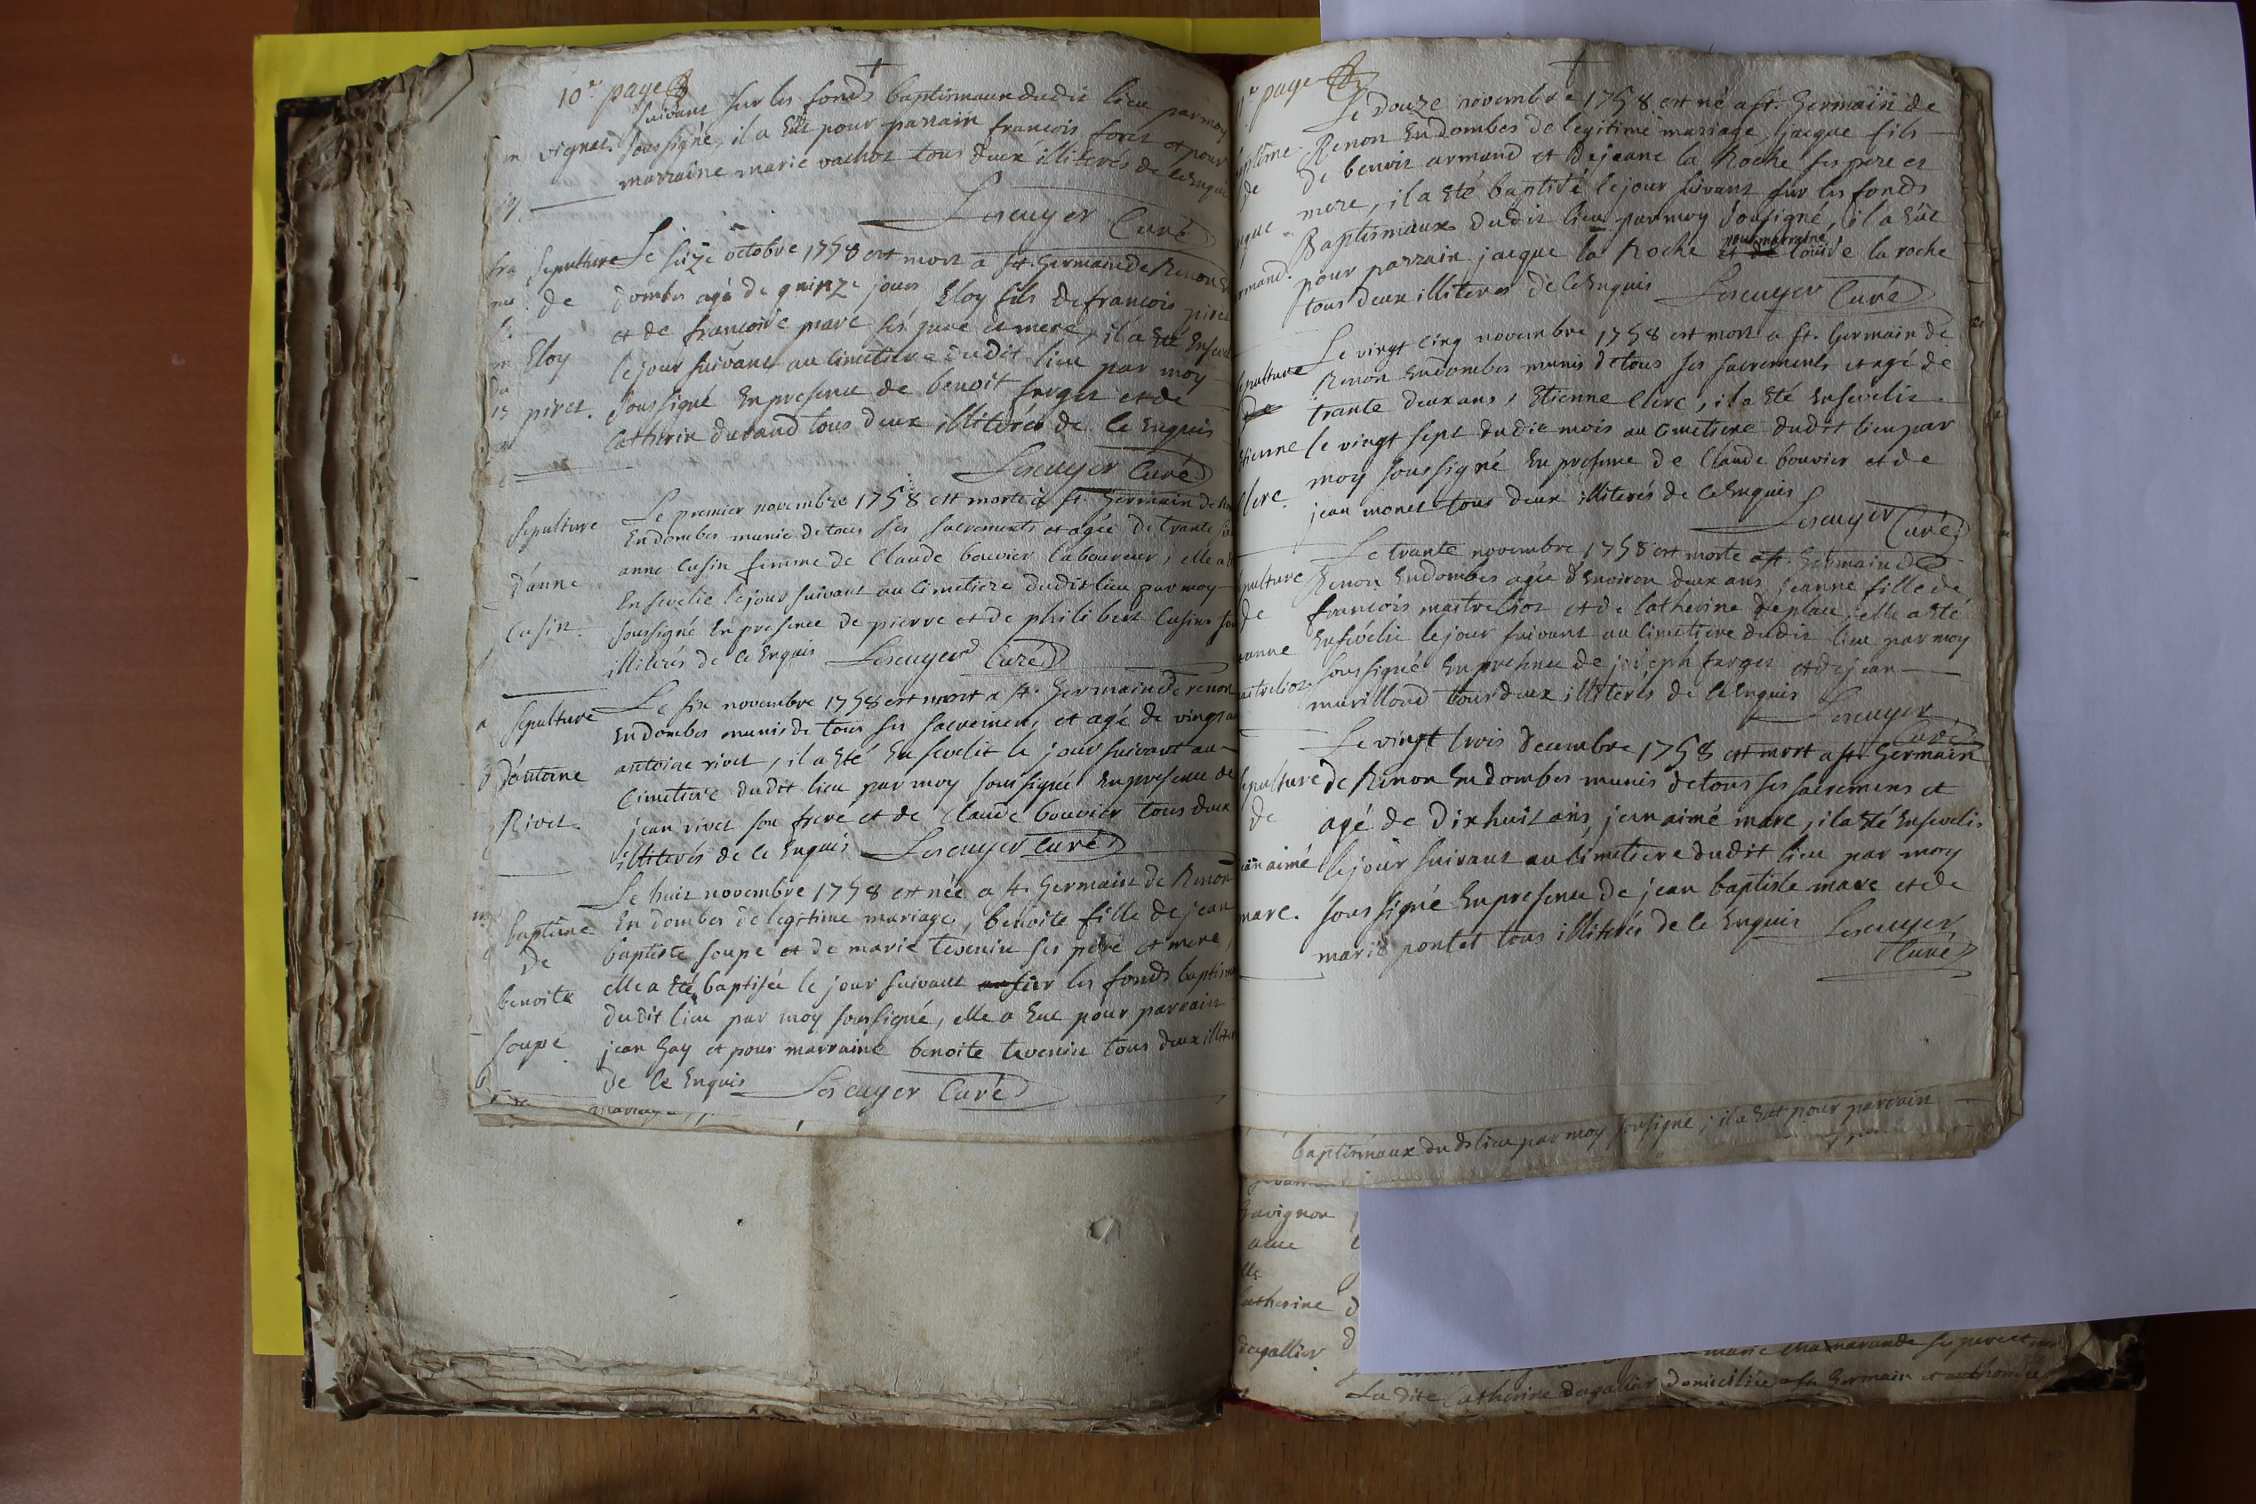 10e page
suivant sur les fonds baptismaux dudit lieu par moy
vignat. soussigné, il a Eut pour parrain francois foret et pour
marraine marie vachot tous deux illiterés de ce Enquis
Lescuyer Curé
Sepulture Le seize octobre 1758 est mort a st. Germain de Renon En
de dombes agé de quinze jours Eloy fils de francois piret
et de francoise mare ses pere et mere, il a Eté Enseveli
Eloy le jour suivant au cimetiere dudit lieu par moy
piret. soussigné En presence de benoit farget et de
Catherin durand tous deux illiterés de ce Enquis
Lescuyer Curé
Sepulture Le premier novembre 1758 est morte a st. Germain de
En dombes munie de tous ses sacrements et agée de trante
d'anne anne Cusin femme de Claude bouvier laboureur, elle a
Ensevelie le jour suivant au cimetiere dudit lieu par moy
Cusin. soussigné En presence de pierre et de philibert Cusin
illiterés de ce Enquis Lescuyer Curé
Sepulture Le six novembre 1758 est mort a st. Germain de renon
En dombes munis de tous ses sacremens et agé de vingt
d'antoine antoine rivet, il a Eté Ensevelit le jour suivant au
cimetiere dudit lieu par moy soussigné En presence de
Rivet. jean rivet son frere et de Claude bouvier tous deux
illiterés de ce Enquis Lescuyer Curé
Le huit novembre 1758 est née a st. Germain de Renon
baptême En dombes de legitime mariage, benoite fille de jean
de baptiste soupe et de marie tevenin ses pere et mere,
benoite elle a Eté baptisée le jour suivant sur les fonds
dudit lieu par moy soussigné, elle a Eue pour parrain
soupe jean Gay et pour marraine benoite tevenin tous deux
de ce Enquis Lescuyer Curé
page
Le douze novembre 1758 est né a st. Germain de
Renon En dombes de legitime mariage, jacque fils
de de benoit armand et de jeane la Roche ses pere et
mere, il a Eté baptisé le jour suivant sur les fonds
Baptismaux dudit lieu par moy sousigné, il a Eût
pour marraine
pour parrain jacque la Roche et de louise la roche
tous deux illiteres de ce Enquis Lescuyer Curé
Le vingt cinq novembre 1758 est mort a st. Germain de
Renon En dombes munis de tous ses sacrements et agé de
de trante deux ans, Etienne Clerc, il a Eté Ensevelit
Etienne le vingt sept dudit mois au cimetiere dudit lieu par
moy soussigné En presence de Claude bouvier et de
Clerc. jean monet tous deux illiterés de ce Enquis
Lescuyer Curé
Le trante novembre 1758 est morte a st. Germain de
Renon En dombes agée d'Environ deux ans jeanne fille de
de francois maitrelion et de Catherine deplace, elle a Eté
Ensevelie le jour suivant au cimetiere dudit lieu par moy
soussigné En presence de joseph farget et de jean
murilloud tous deux illiterés de ce Enquis
Lescuyer Curé
Le vingt trois decembre 1758 est mort a st. Germain
de Renon En dombes munis de tous ses sacremens et
de agé de dix huit ans, jean aimé mare, il a Eté Enseveli
aimé le jour suivant au cimetiere dudit lieu par moy
mare. soussigné En presence de jean baptiste mare et de
marie pontet tous illiterés de ce Enquis Lescuyer
Curé
baptismaux dudt lieu par moy sousigné, il a Eut pour parrain
dagallier
La dite Catherine dagallier domiciliée a st. Germain